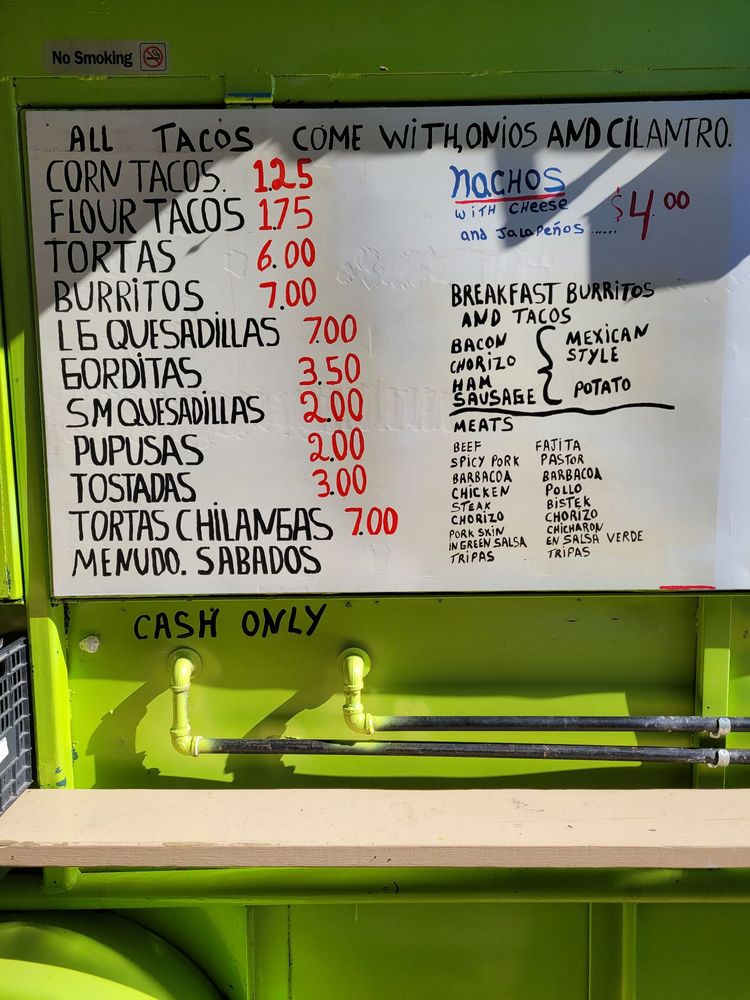 No Smoking
ALL TACOS COME WITH,ONIOS AND CILANTRO.
CORN TACOS. 1.25
FLOUR TACOS 1.75
TORTAS 6.00
BURRITOS 7.00
LG QUESADILLAS 7.00
GORDITAS 3.50
SM QUESADILLAS 2.00
PUPUSAS 2.00
TOSTADAS 3.00
TORTAS CHILANGAS 7.00
MENUDO. SABADOS
NACHOS
WITH CHEESE
AND JALAPEÑOS ...... $4.00
BREAKFAST BURRITOS
AND TACOS
BACON
CHORIZO
HAM
SAUSAGE
MEXICAN
STYLE
POTATO
MEATS
BEEF FAJITA
SPICY PORK PASTOR
BARBACOA BARBACOA
CHICKEN POLLO
STEAK BISTEK
CHORIZO CHORIZO
PORK SKIN CHICHARON
IN GREEN SALSA EN SALSA VERDE
TRIPAS TRIPAS
CASH ONLY